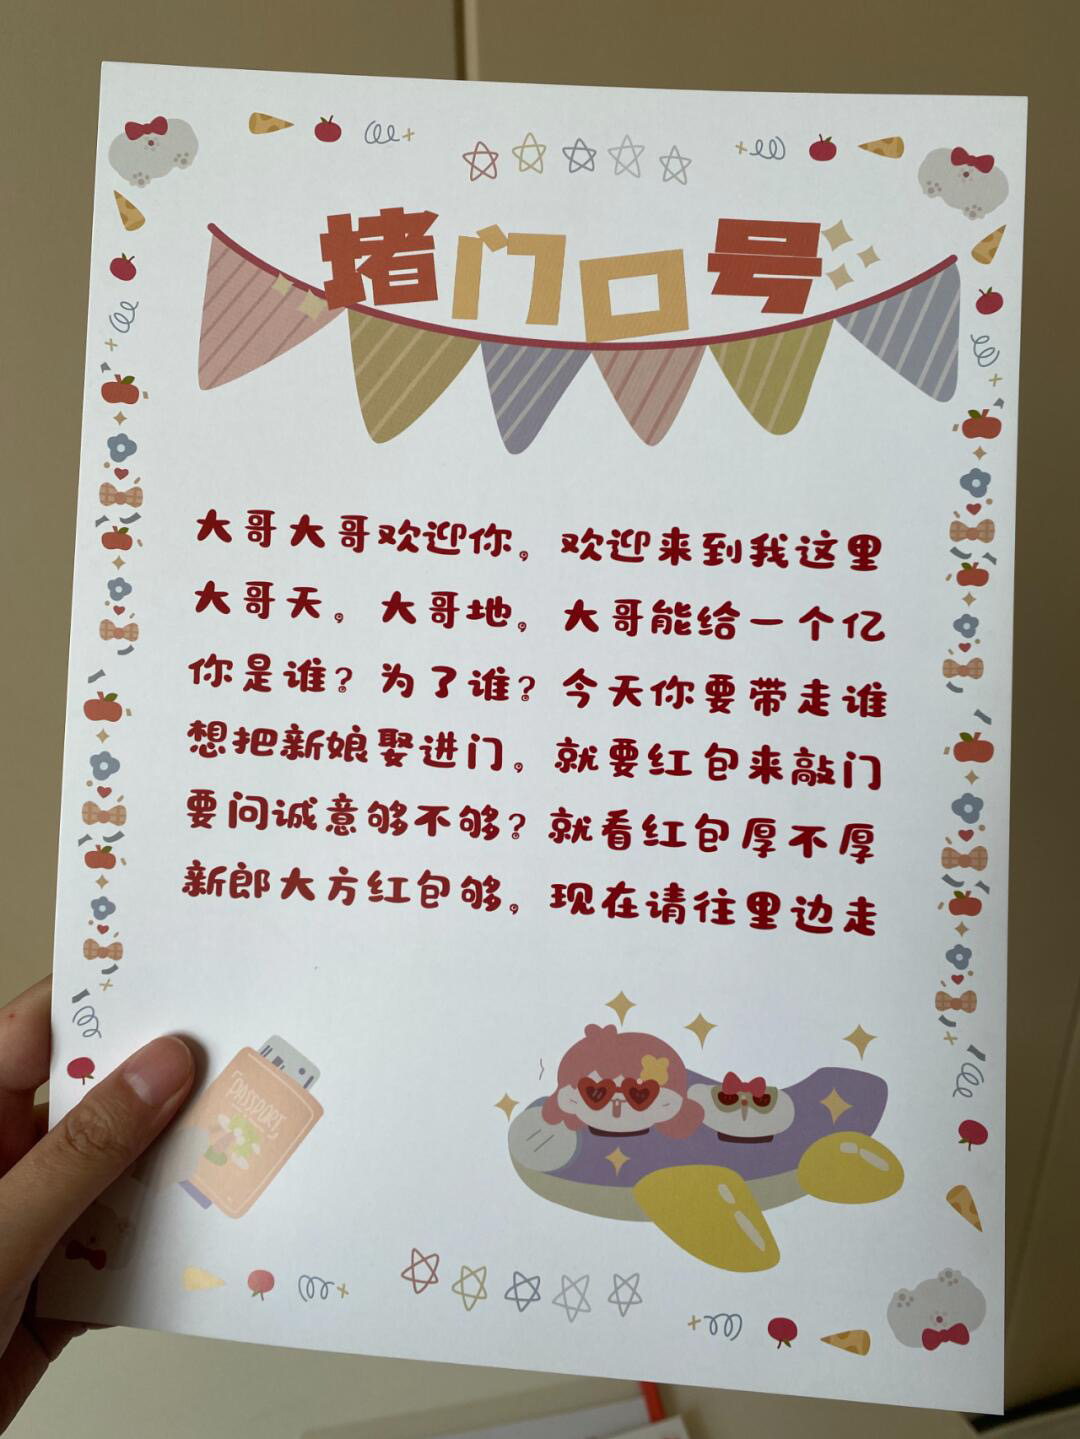 堵门口号
大哥大哥欢迎你。欢迎来到我这里
大哥天。大哥地。大哥能给一个亿
你是谁?为了谁?今天你要带走谁
想把新娘娶进门。就要红包来敲门
要问诚意够不够?就看红包厚不厚
新郎大方红包够。现在请往里边走
PASSPORT